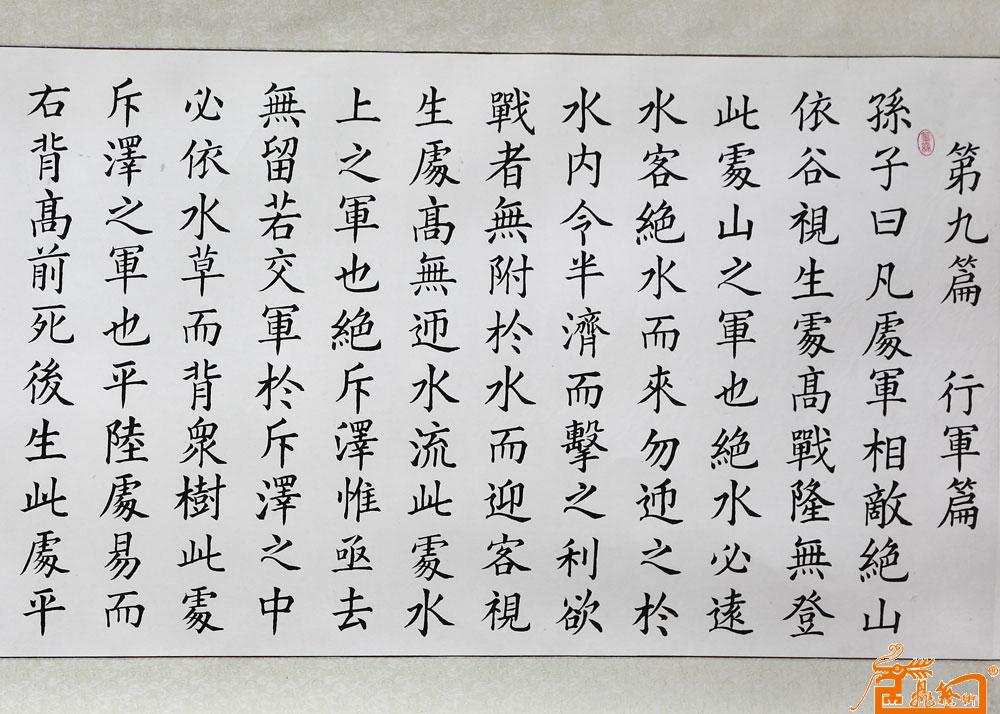 第九篇 行軍篇
孫子曰凡處軍相敵絕山
依谷視生處髙戰隆無登
此處山之軍也絕水必遠
水客絕水而來勿迊之於
水内令半濟而擊之利欲
戰者無附於水而迎客視
生處髙無迊水流此處水
上之軍也絕斥澤惟亟去
無留若交軍於斥澤之中
必依水草而背衆樹此處
斥澤之軍也平陸處易而
右背髙前死後生此處平